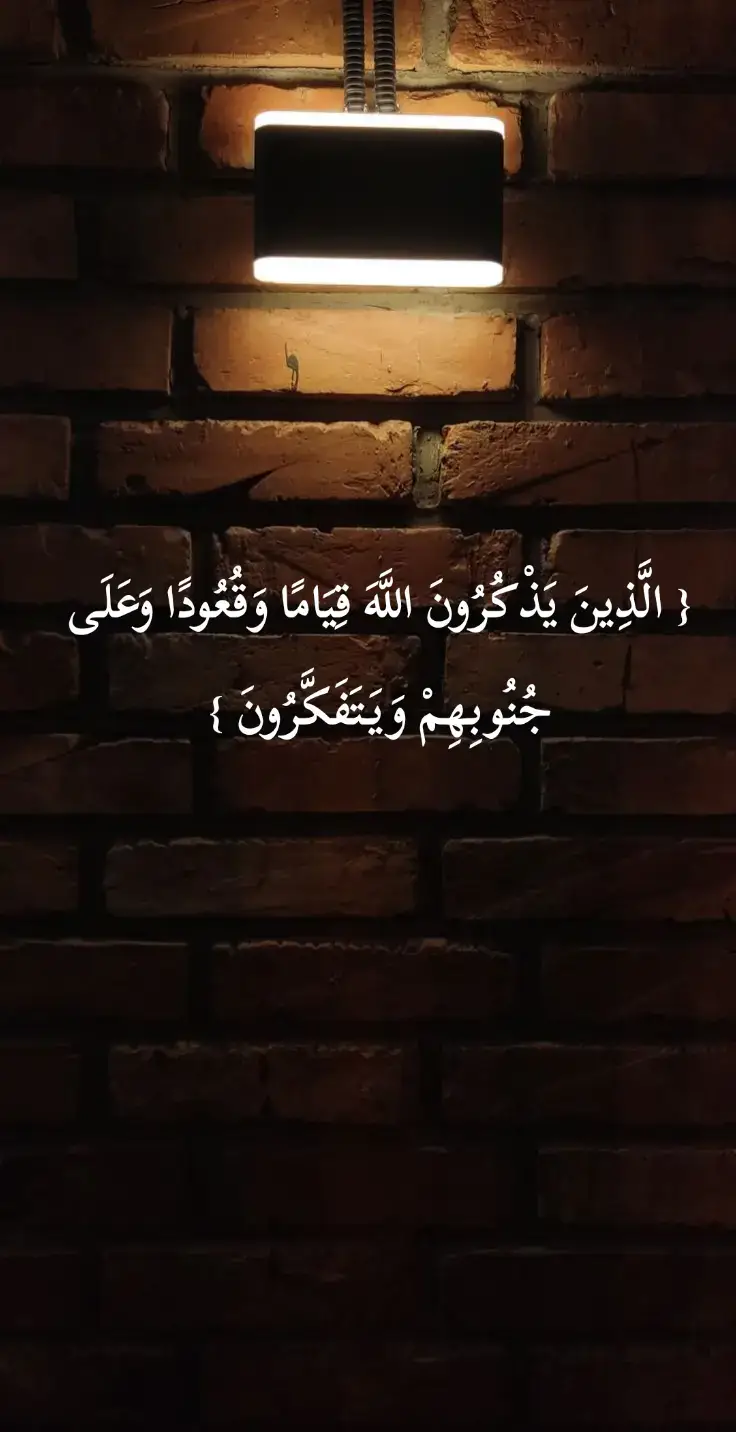 { الَّذِينَ يَذْكُرُونَ اللَّهَ قِيَامًا وَقُعُودًا وَعَلَى
جُنُوبِهِمْ وَيَتَفَكَّرُونَ }